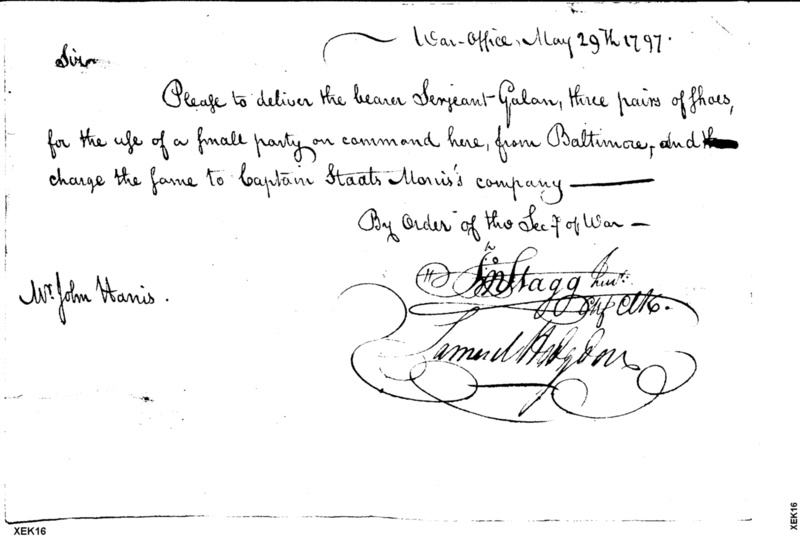 War-Office, May 29th 1797.
Sir
Please to deliver the bearer Serjeant Galan, three pairs of shoes,
for the use of a small party on command here, from Baltimore, and
charge the same to Captain Staats Morris's company
By Order of the Secy of War
Jno Stagg Junr.
Chf Clk.
Mr. John Harris.
Samuel Hodgdon
XEK16
XEK16